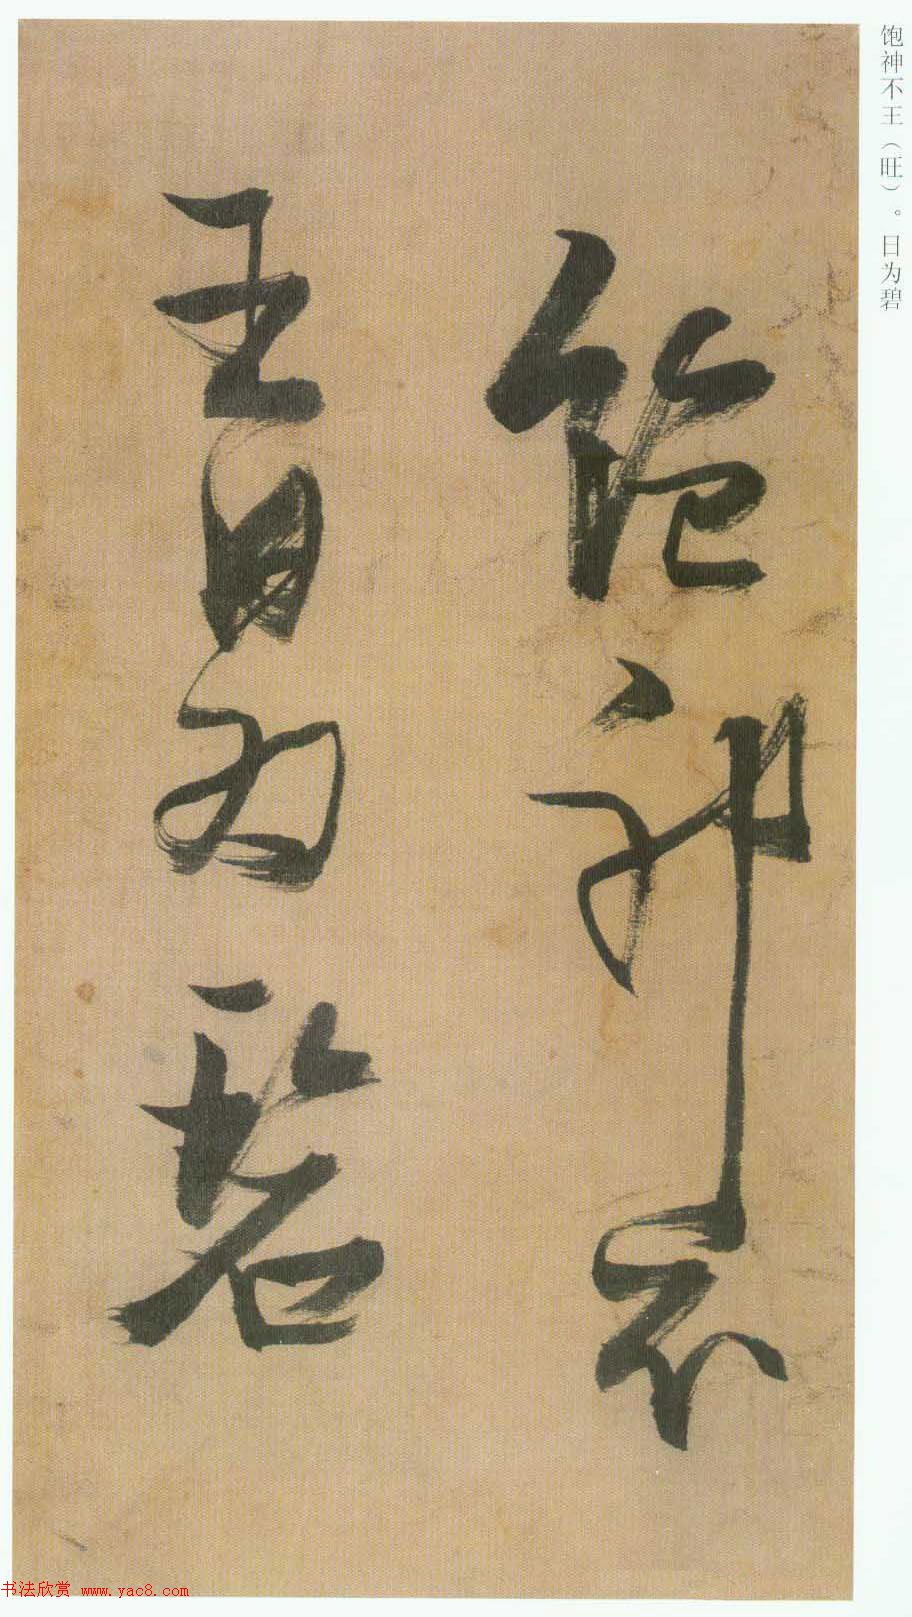 饱神不王（旺）。日为碧
飽神不
王日为碧
书法欣赏 www.yac8.com